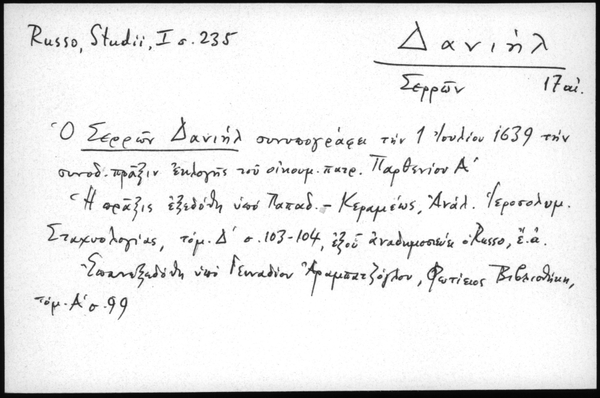 Russo, Studii, I σ. 235
Δανιήλ
Σερρῶν 17 αἰ.
Ὁ Σερρῶν Δανιήλ συνυπογράφει τὴν 1 Ἰουλίου 1639 τὴν
συνοδ. πρᾶξιν ἐκλογῆς τοῦ οἰκουμ. πατρ. Παρθενίου Α'
Ἡ πρᾶξις ἐξεδόθη ὑπὸ Παπαδ. - Κεραμέως, Ἀνάλ. Ἱεροσολυμ.
Σταχυολογίας, τόμ. Δ' σ. 103-104, ἐξ οὗ ἀναδημοσιεύει ὁ Russo, ἔ.ἀ.
Ἐπανεξεδόθη ὑπὸ Γενναδίου Ἀραμπατζόγλου, Φωτίειος Βιβλιοθήκη,
τόμ. Α' σ. 99